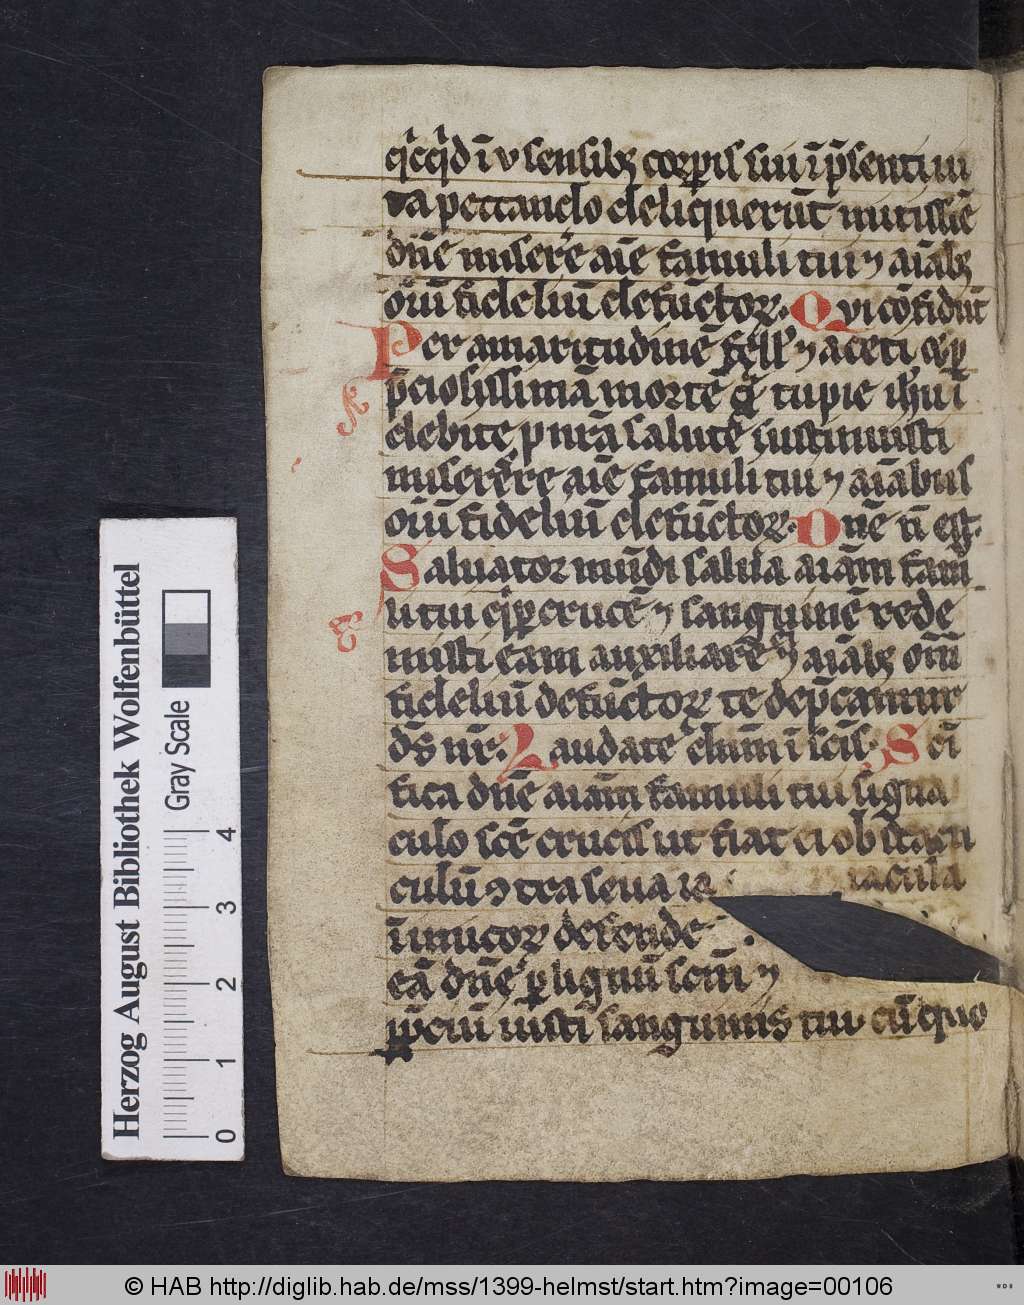 qicqid ī v sensibꝫ corpis sui ī p̄senti ui
ta peccando deliquerūt mitissīe
dn̄e miserere aīe famuli tui ⁊ aīabꝫ
oīm fideliū defūctoꝝ. Qvi cōfidūt
Per amaritudinē fell' ⁊ aceti ⁊ ꝑ
p̄ciosissimā mortē qͣ tu pie ih̄u ī
debite ꝓ nr̄a salute sustinuisti
miserere aīe famuli tui ⁊ aīabus
oīm fideliū defūctoꝝ. Dn̄e n̄ est.
Saluator mūdi salua aīam fam
uli tui q̄ ꝑ crucē ⁊ sanguinē rede
misti eam auxiliare ⁊ aīabꝫ om̄
fideliū defūctoꝝ te dep̄camur
ds̄ nr̄. Laudate dn̄m ī scīs. Scī
fica dn̄e aīam famuli tui signa
culo sc̄e crucis ut fiat ei obstacu
culū ꝯtra seua ia iacula
īimicoꝝ defende
eā dn̄e ꝑ lignū scm̄ ⁊
p̄ciū iusti sanguinis tui cū quo
Herzog August Bibliothek Wolfenbüttel
Gray Scale
0 1 2 3 4
© HAB http://diglib.hab.de/mss/1399-helmst/start.htm?image=00106